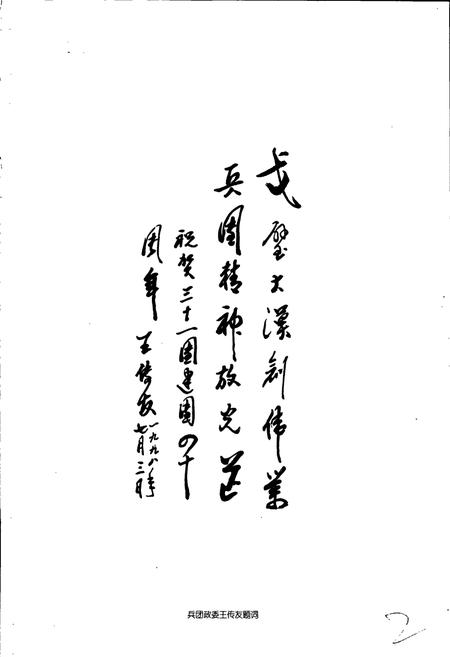 戈壁大漠创伟业
兵团精神放光芒
祝贺三十一团建团四十
周年 王传友
一九九八年
七月三日
兵团政委王传友题词
2